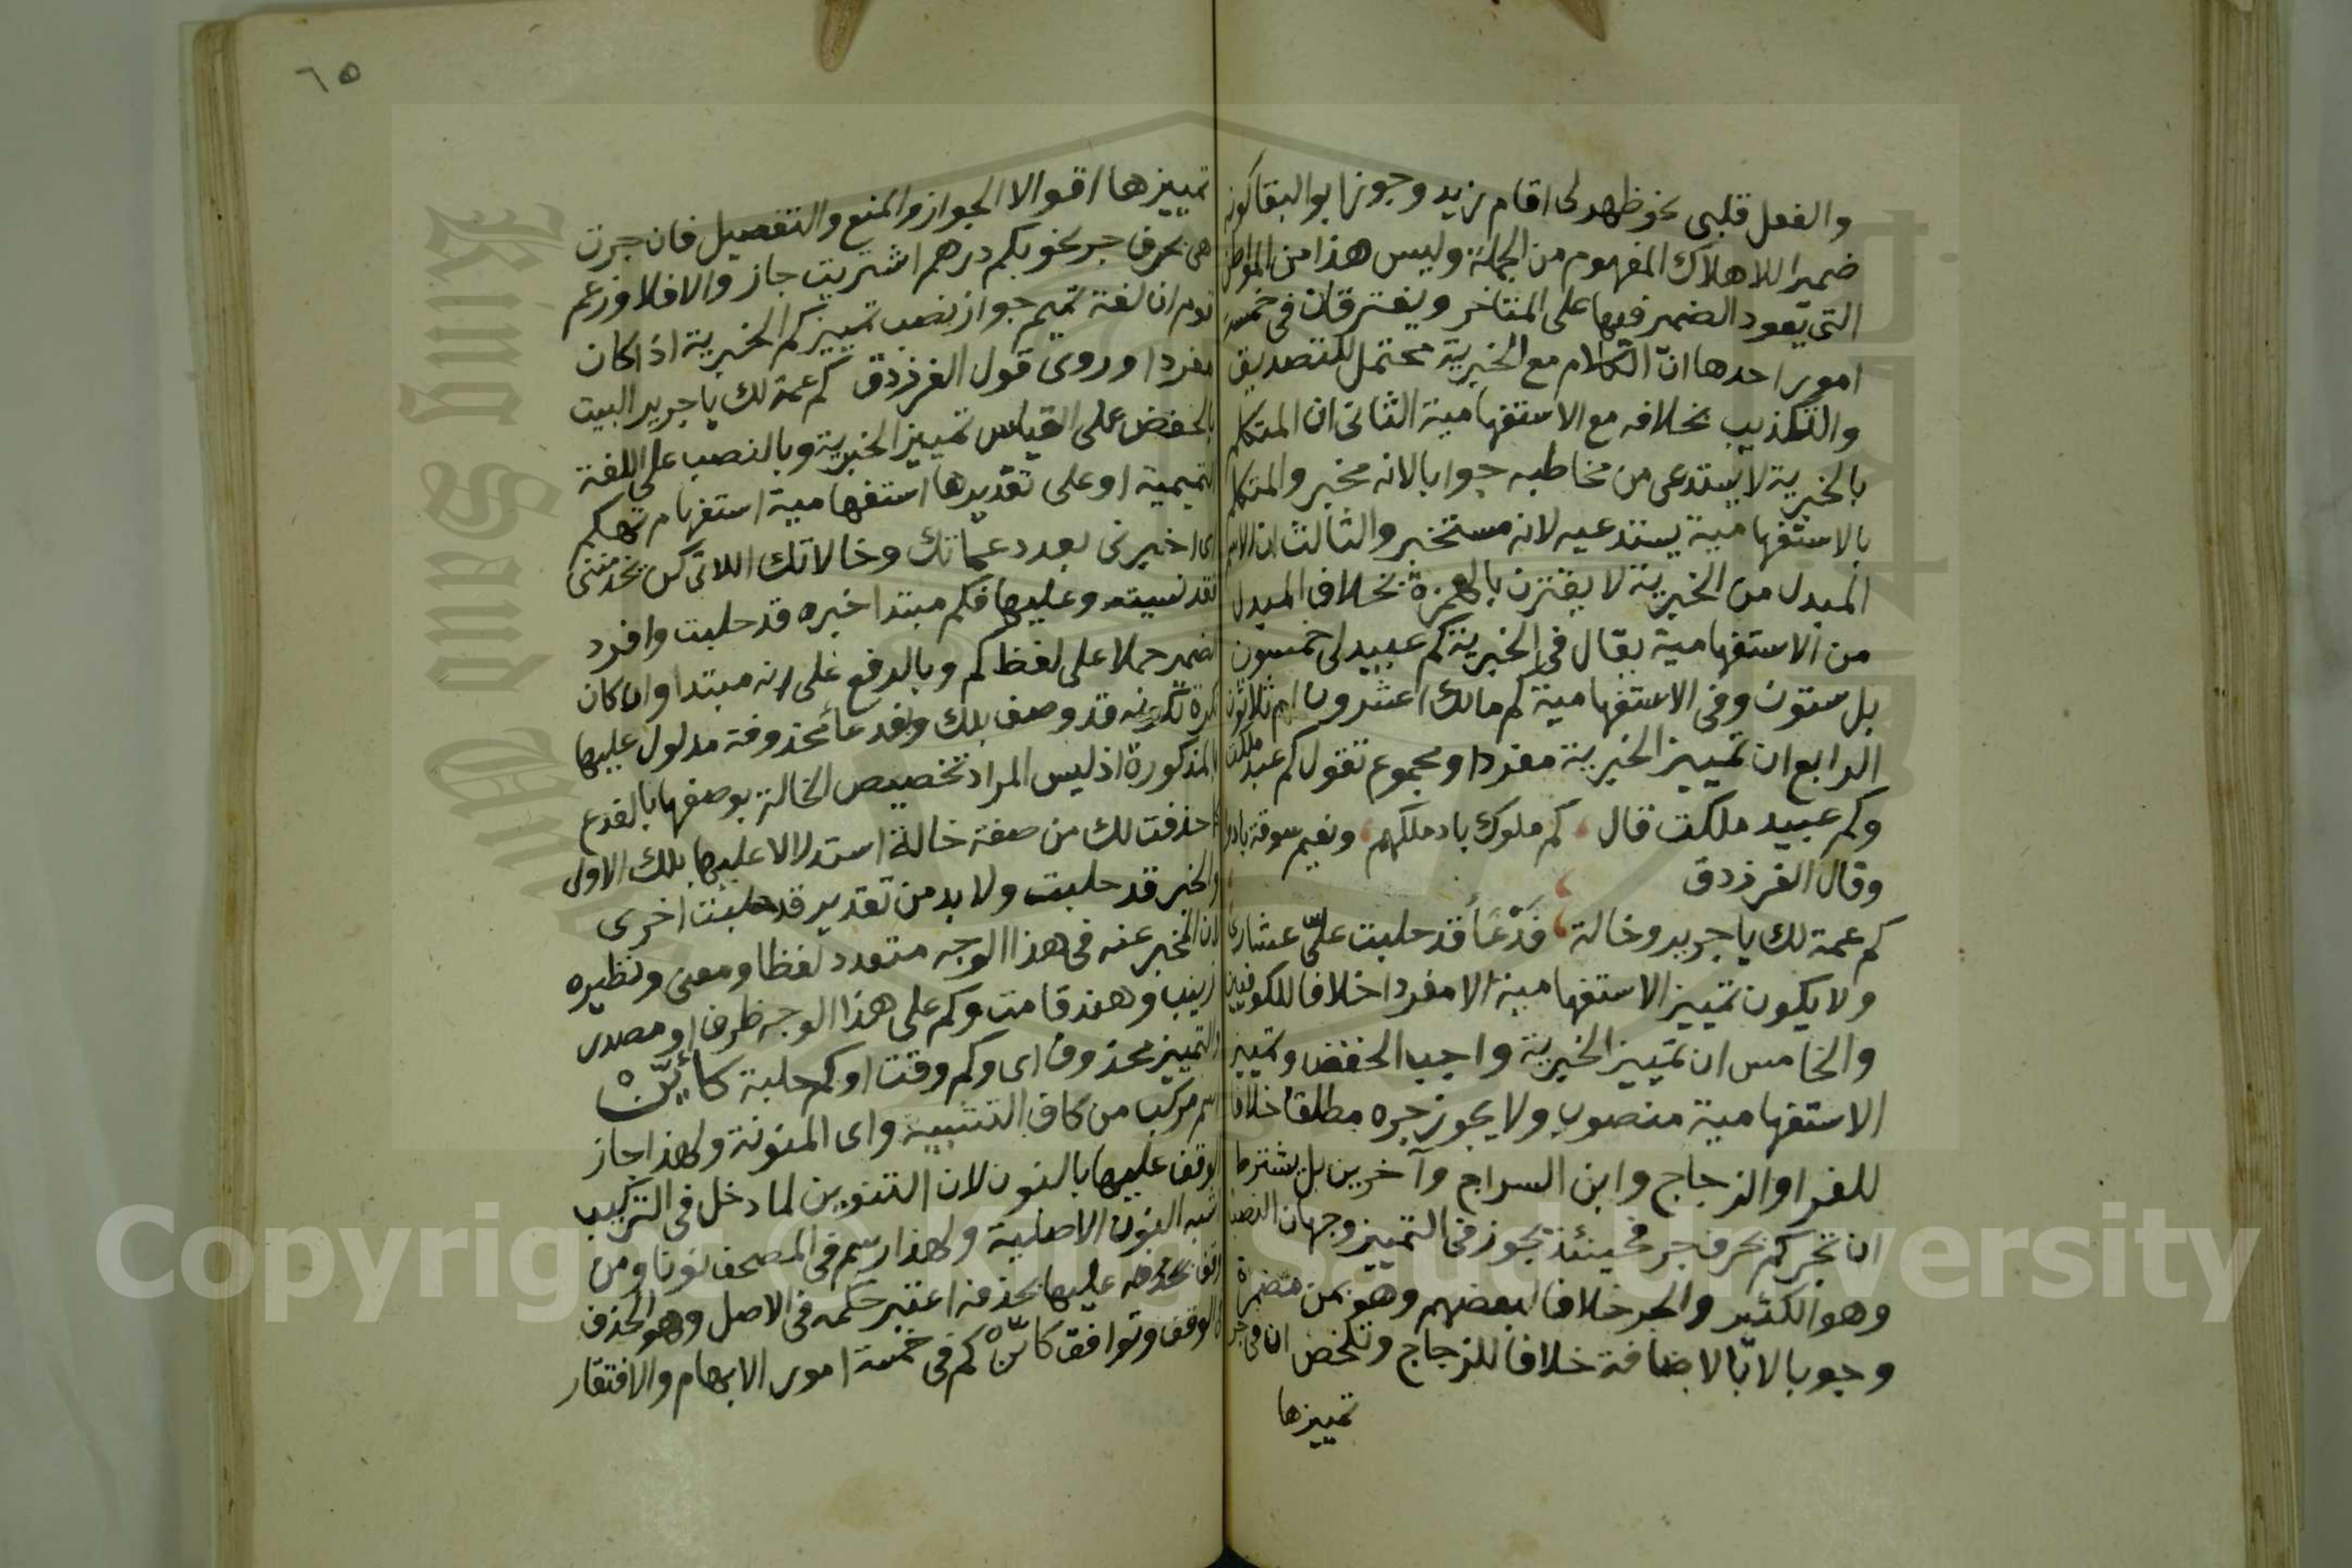 والفعل قلبى نحو ظهر لى اقام زيد وجوز ابو البقا كونه
ضميرا للاهلاك المفهوم من الجملة وليس هذا من المواطن
التى يعود الضمير فيها على المتاخر ويفترقان فى خمسة
امور احدها ان الكلام مع الخبرية محتمل للتصديق
والتكذيب بخلافه مع الاستفهامية الثانى ان المتكلم
بالخبرية لا يستدعى من مخاطبه جوابا لانه مخبر والمتكلم
بالاستفهامية يستدعيه لانه مستخبر والثالث ان الاسم
المبدل من الخبرية لا يقترن بالهمزة بخلاف المبدل
من الاستفهامية يقال فى الخبرية كم عبيد لى خمسون
بل ستون وفى الاستفهامية كم مالك اعشرون ام ثلاثون
الرابع ان تمييز الخبرية مفرد او مجموع تقول كم عبد ملكت
وكم عبيد ملكت قال كم ملوك باد ملكهم ونعيم سوقة بادوا
وقال الفرزدق
كم عمة لك يا جرير وخالة فدعا قد حلبت علىّ عشارى
ولا يكون تمييز الاستفهامية الا مفردا خلافا للكوفيين
والخامس ان تمييز الخبرية واجب الخفض وتمييز
الاستفهامية منصوب ولا يجوز جره مطلقا خلافا
للفرا والزجاج وابن السراج وآخرين بل يشترط
ان تجر كم بحرف جر فحينئذ يجوز فى التمييز وجهان النصب
وهو الكثير والجر خلافا لبعضهم وهو بمن مضمرة
وجوبا لا بالاضافة خلافا للزجاج وتلخص ان فى جر
تمييزها
٦٥
تمييزها اقوالا الجواز والمنع والتفصيل فان جرت
هى بحرف جر نحو بكم درهم اشتريت جاز والا فلا وزعم
قوم ان لغة تميم جواز نصب تمييز كم الخبرية اذا كان
مفردا وروى قول الفرزدق كم عمة لك يا جرير البيت
بالخفض على القياس تمييز الخبرية وبالنصب على اللغة
التميمية او على تقديرها استفهامية استفهام تهكم
اى اخبرنى بعدد عماتك وخالاتك اللاتى كن يخدمننى
فقد نسيته وعليها فكم مبتدا خبره قد حلبت وافرد
الضمير حملا على لفظ كم وبالرفع على انه مبتدا وان كان
نكرة لكونه قد وصف بلك وبفدعا محذوفة مدلول عليها
بالمذكورة اذ ليس المراد تخصيص الخالة بوصفها بالفدع
كما حذفت لك من صفة خالة استدلالا عليها بلك الاولى
والخبر قد حلبت ولا بد من تقدير قد حلبت اخرى
لان المخبر عنه فى هذا الوجه متعدد لفظا ومعنى ونظيره
زينب وهند قامت وكم على هذا الوجه ظرف او مصدر
والتمييز محذوف اى وكم وقت او كم حلبة كأيّن
اسم مركب من كاف التشبيه واى المنونة ولهذا جاز
الوقف عليها بالنون لان التنوين لما دخل فى التركيب
اشبه النون الاصلية ولهذا رسم فى المصحف نونا ومن
وقف عليها بحذفه اعتبر حكمه فى الاصل وهو الحذف
فى الوقف وتوافق كائن كم فى خمسة امور الابهام والافتقار